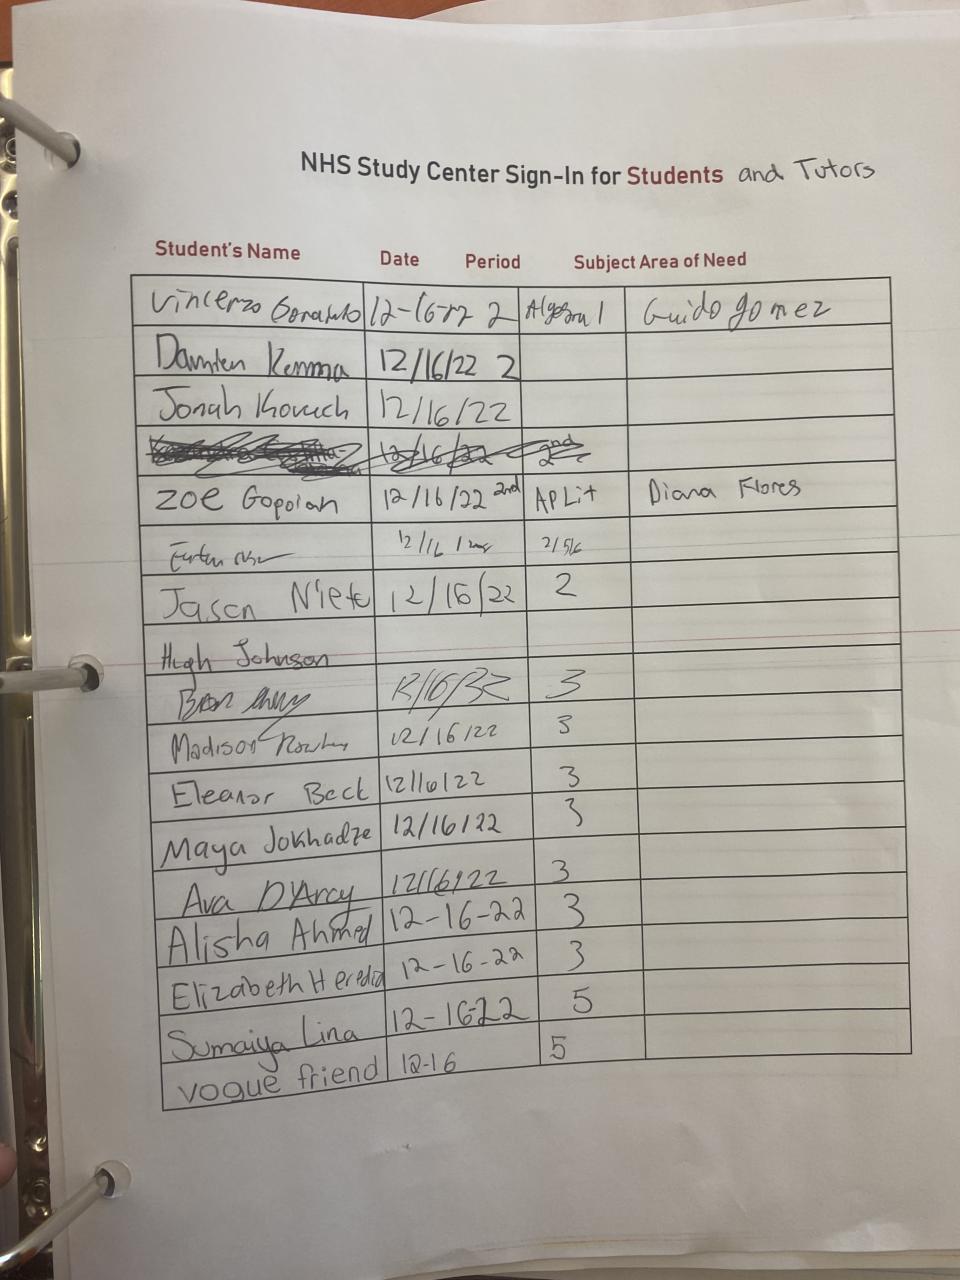 NHS Study Center Sign-In for Students and Tutors
Student's Name Date Period Subject Area of Need
Vincenzo 12-16-22 2 Algebra 1 Guido gomez
Damien 12/16/22 2
Jonah 12/16/22
12/16/22 2nd
Zoe Gopoian 12/16/22 2nd AP Lit Diana Flores
12/16
Jason Nieto 12/16/22 2
Hugh Johnson
3
Madison 12/16/22 3
Eleanor Beck 12/16/22 3
Maya Jokhadze 12/16/22 3
Ava D'Arcy 12/16/22 3
Alisha Ahmed 12-16-22 3
Elizabeth Heredia 12-16-22 3
Sumaiya Lina 12-16-22 5
vogue friend 12-16 5